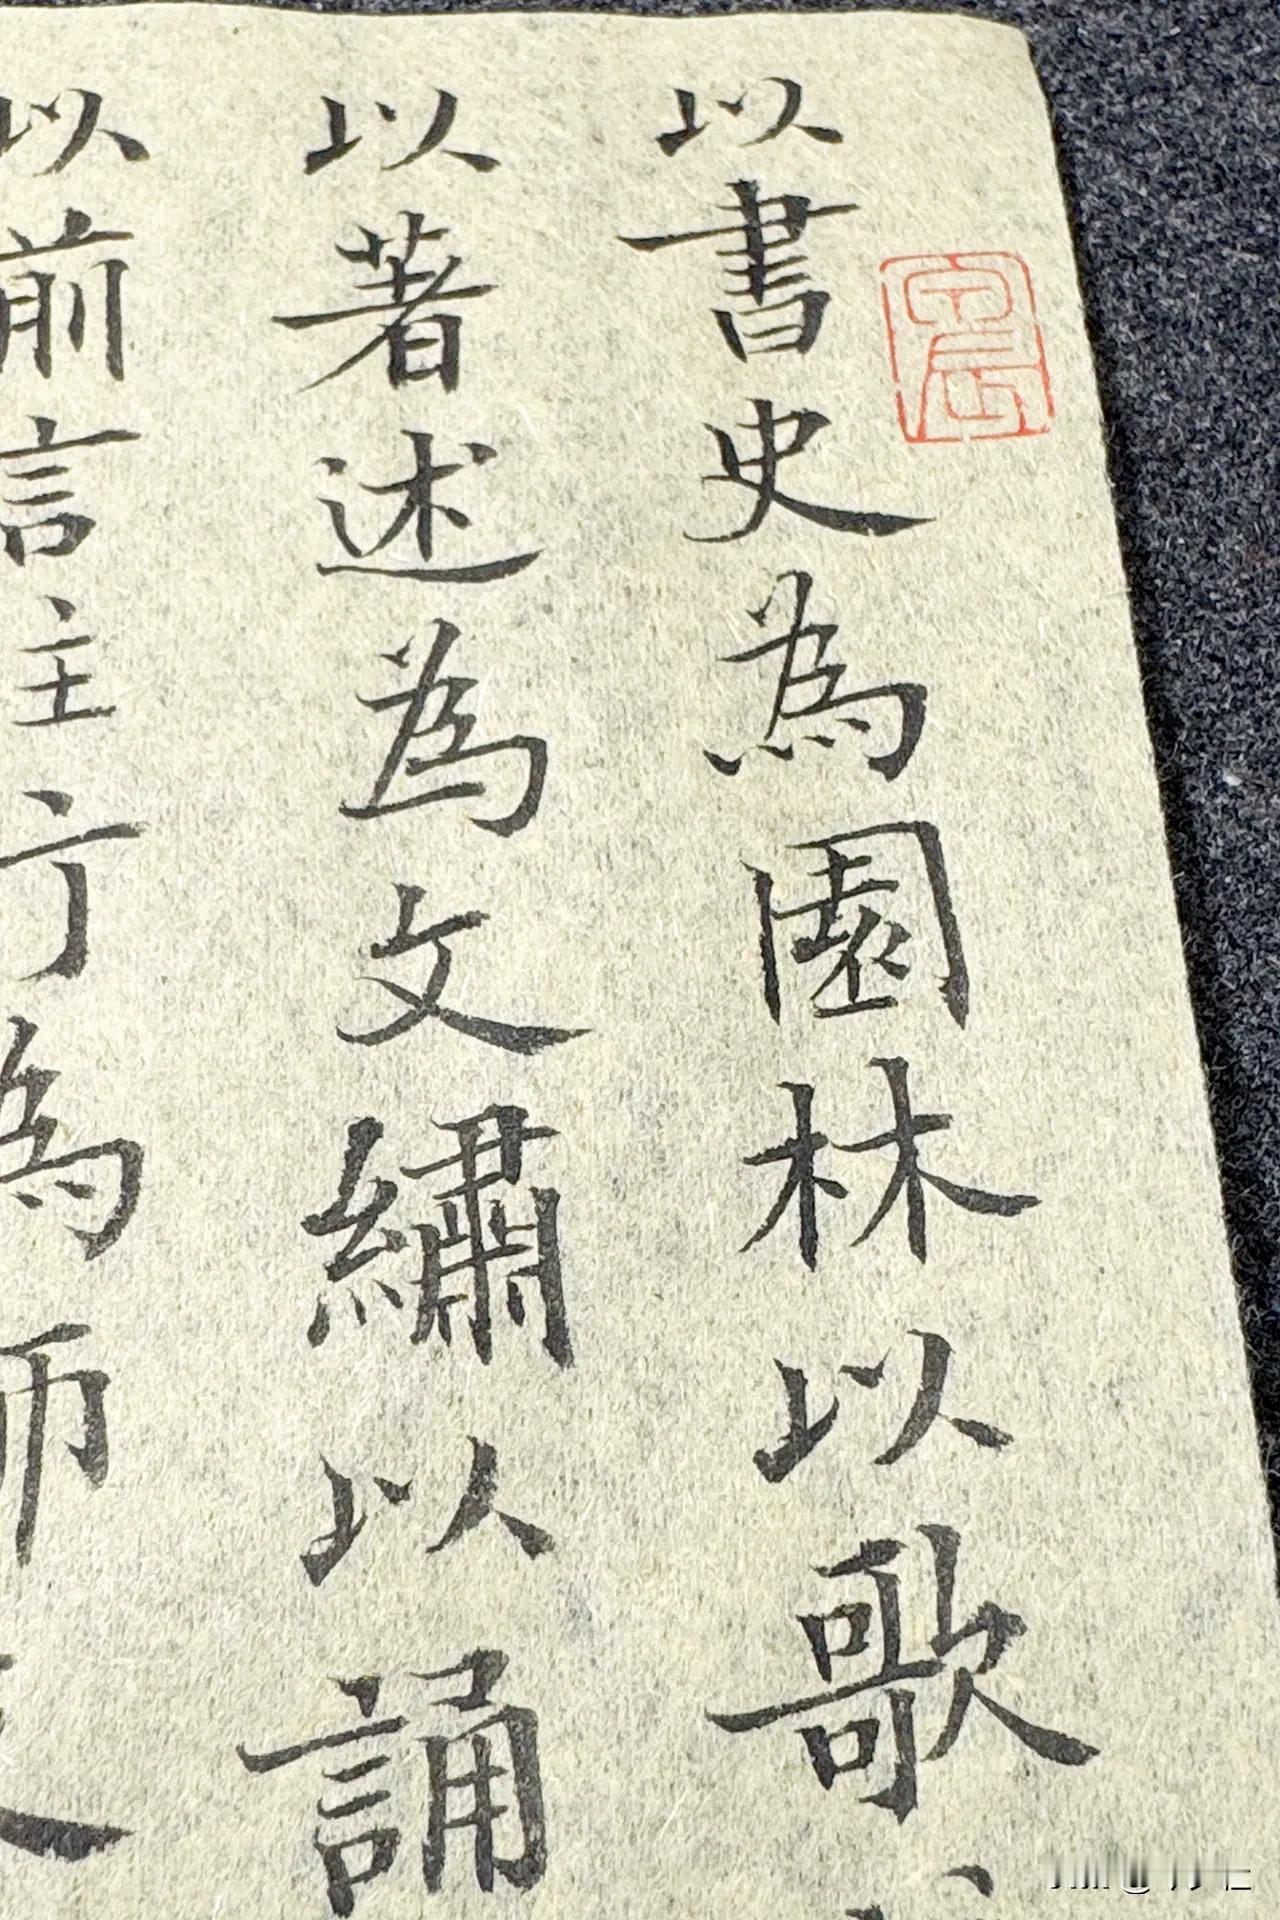 以書史為園林以歌
以著述為文繡以誦
以前言主行為師